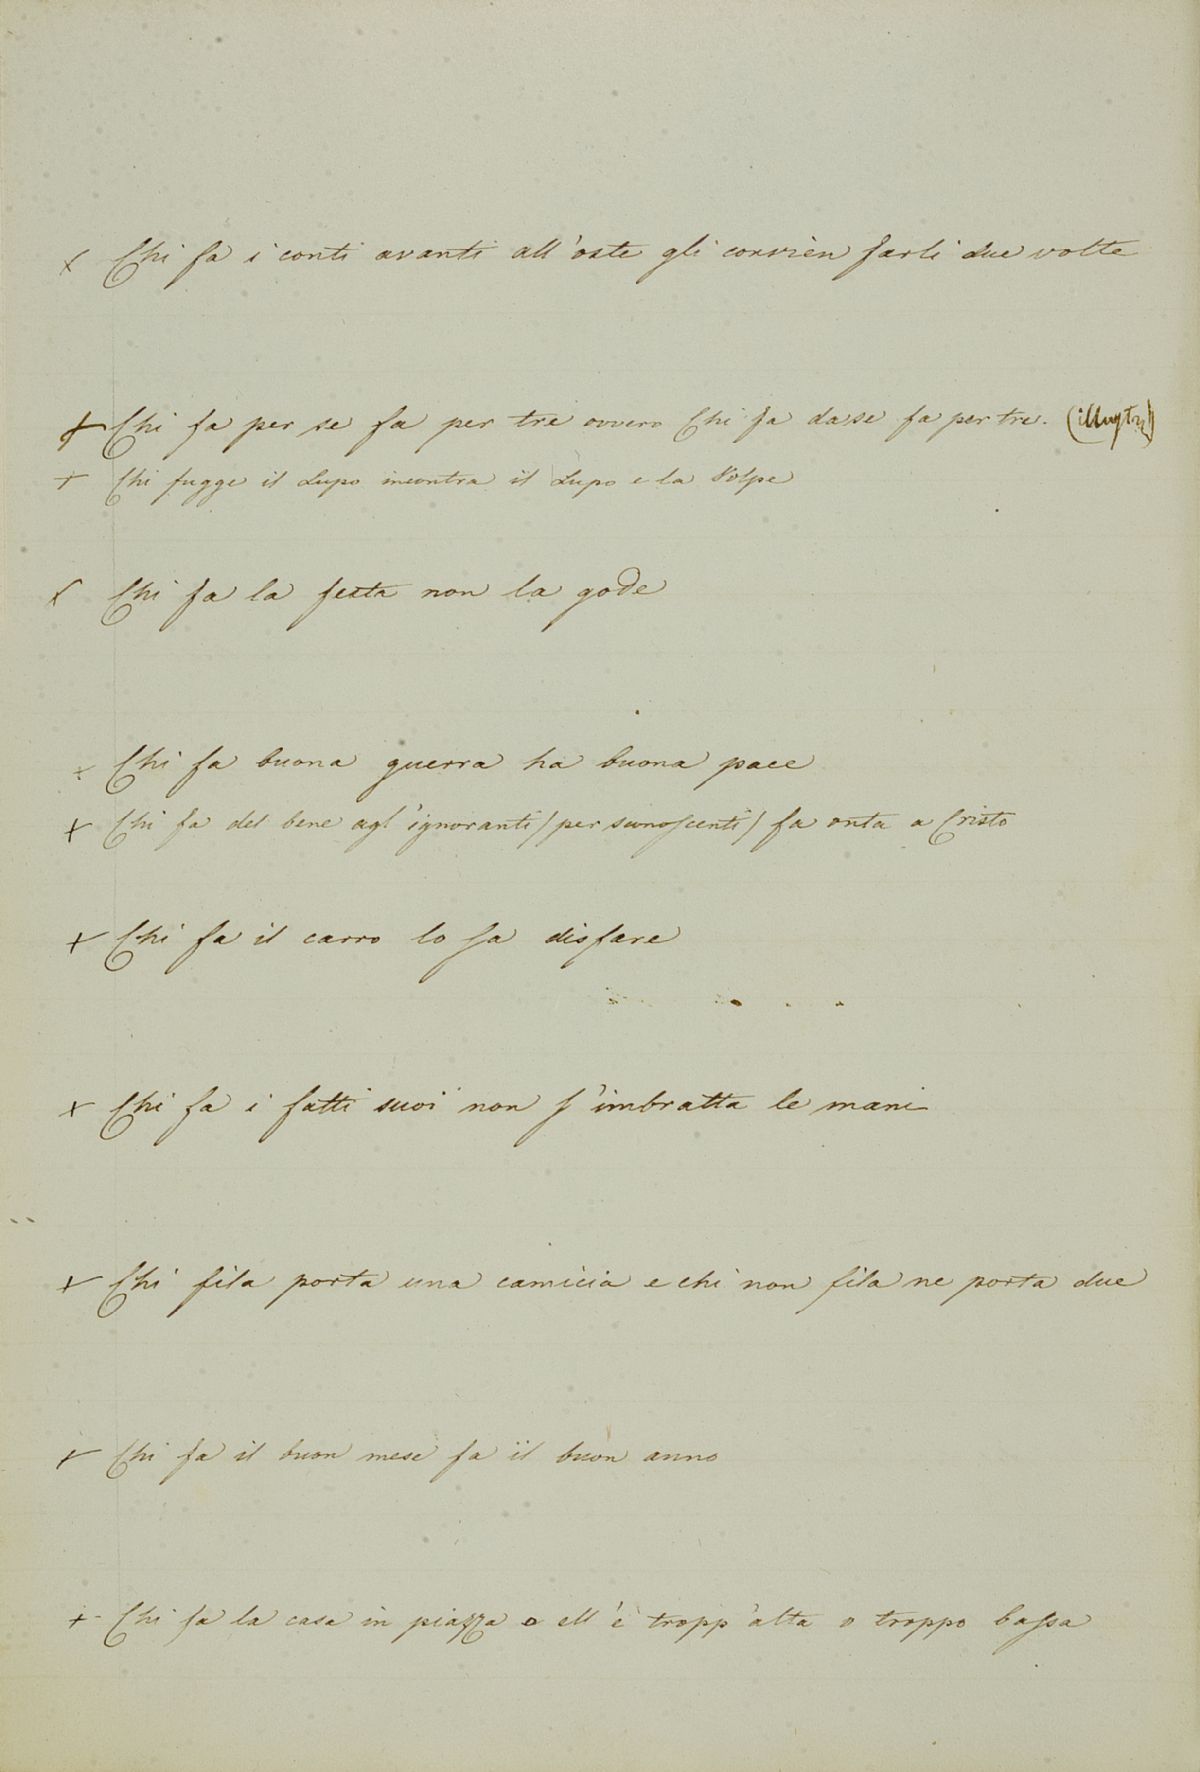 x Chi fa i conti avanti all'oste gli convien farli due volte
x Chi fa per se fa per tre ovvero Chi fa da se fa per tre.
+ Chi fugge il Lupo incontra il Lupo e la Volpe
x Chi fa la festa non la gode
x Chi fa buona guerra ha buona pace
x Chi fa del bene agl'ignoranti (per sconoscenti) fa onta a Cristo
x Chi fa il carro lo sa disfare
x Chi fa i fatti suoi non s'imbratta le mani
x Chi fila porta una camicia e chi non fila ne porta due
x Chi fa il buon mese fa il buon anno
+ Chi fa la casa in piazza o ell'è tropp'alta o troppo bassa